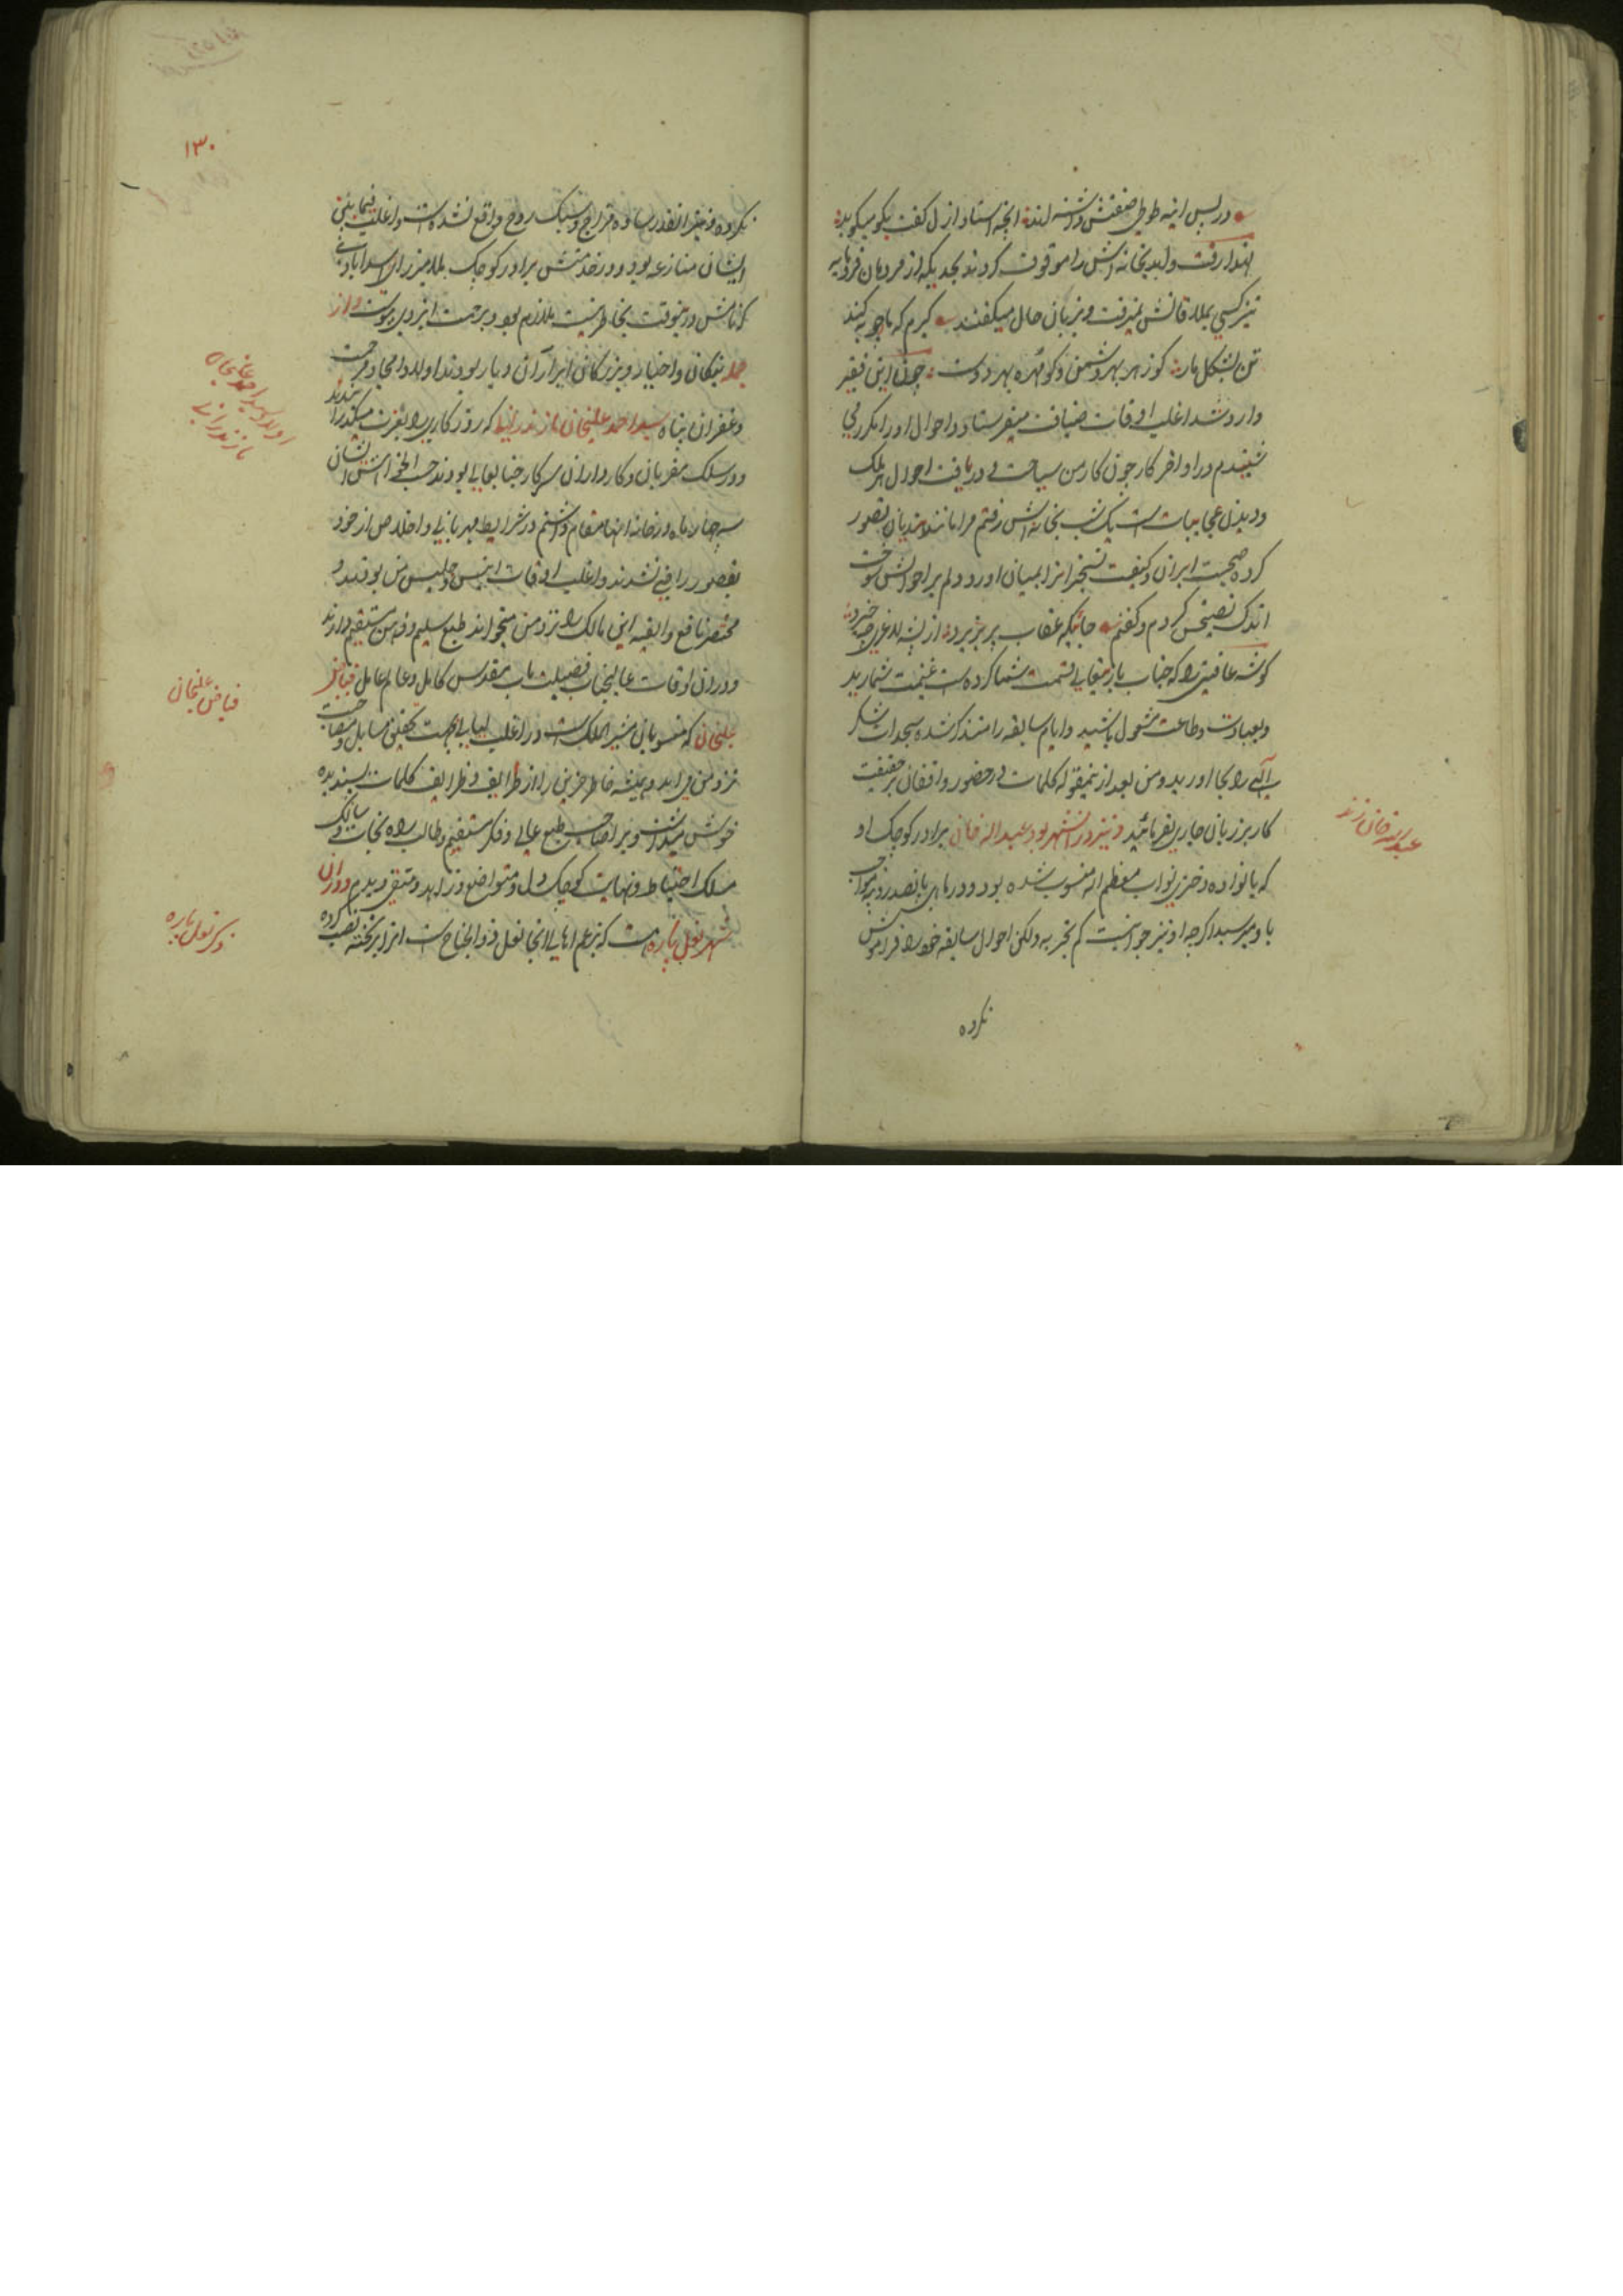 در پس آینه طوطی صفتش داشته اند آنچه استاد ازل گفت بگو میگوید
لهذا رفت و آمد بخانه اش را موقوف کردند بحدیکه از مردمان فرومایه
نیز کسی بملاقاتش نمیرفت و بزبان حال میگفتند گیرم که مارچوبه کند
تن بشکل مار کو زهر بهر دشمن و کو مهره بهر دوست چون این فقیر
وارد شد اغلب اوقات ضیافت میفرستاد و احوال او را مکرر می
شنیدم در اواخر کار چون کار من سیاحت و دریافت احوال هر ملک
و دیدن عجایبات است یک شب بخانه اش رفتم مرا مانند هندیان تصور
کرده صحبت ایران و کیفیت تسخیر آنرا بمیان آورد دلم بر احوالش سوخت
اندک نصیحتش کردم و گفتم جائیکه عقاب پر بریزد از پشه لاغری چه خیزد
گوشه عافیتی را که جناب باریتعالی قسمت شما کرده است غنیمت شمارید
و بعبادت و طاعت مشغول باشید و ایام سابقه را متذکر شده سجدات شکر
الهی را بجا آورید و من بعد از اینمقوله کلمات در حضور واقفان بر حقیقت
کار بر زبان جاری نفرمائید و نیز در آنشهر بود عبداله خان برادر کوچک او
که با نواده دختری نواب معظم الیه منسوب شده بود و در ماهی پانصد روپیه مواجب
باو میرسید اگرچه او نیز جوانیست کم تجربه ولکن احوال سابقه خود را فراموش
نکرده
عبداله خان زند
۱۳۰
نکرده و نیز آنقدر ساده مزاج و سبک روح واقع نشده است و اغلب فیمابین
ایشان منازعه بود و در خدمتش برادر کوچک ملا میرزای اسدآبادی
که نامش در اینوقت بخاطر نیست ملازم بود و برحمت ایزدی پیوست و از
جمله نیکان و اخیار و بزرگان ابرار آن دیار بودند اولاد و امجاد مرحمت
و غفران پناه سید احمد علیخان مازندرانی که روزگاری را بعزت میگذرانیدند
و در سلک مقربان و کارداران سرکار جنابعالی بودند حسب الخواهش ایشان
سه چهار ماه در خانه آنها مقام داشتم در شرایط مهربانی و اخلاص از خود
بقصور راضی نشدند و اغلب اوقات انیس و جلیس من بودند و
مختصر نافع و الفیه ابن مالک را نزد من میخواندند طبع سلیم و ذهن مستقیم دارند
و در آن اوقات عالیجناب فضیلت مآب مقدس کامل و عالم عامل فیاض
علیخان که منسوبان مشیر الملک است در اغلب لیالی بجهت تحقیق مسایل و مصاحبت
نزد من می آمد و همیشه خاطر حزین را از ظرایف و طرایف کلمات پسندیده
خوش میداشت و بر اصاحب طبع عالی و فکر مستقیم و طالب راه نجات و سالک
مسلک احتیاط و نهایت کوچک دل و متواضع و زاهد و متقی دیدم و در آن
شهر نعل پاره است که بزعم اهالی آنجا نعل ذوالجناح است آنرا بر تخته نصب کرده
اولاد سید احمد علیخان
مازندرانی
فیاض علیخان
ذکر نعل پاره